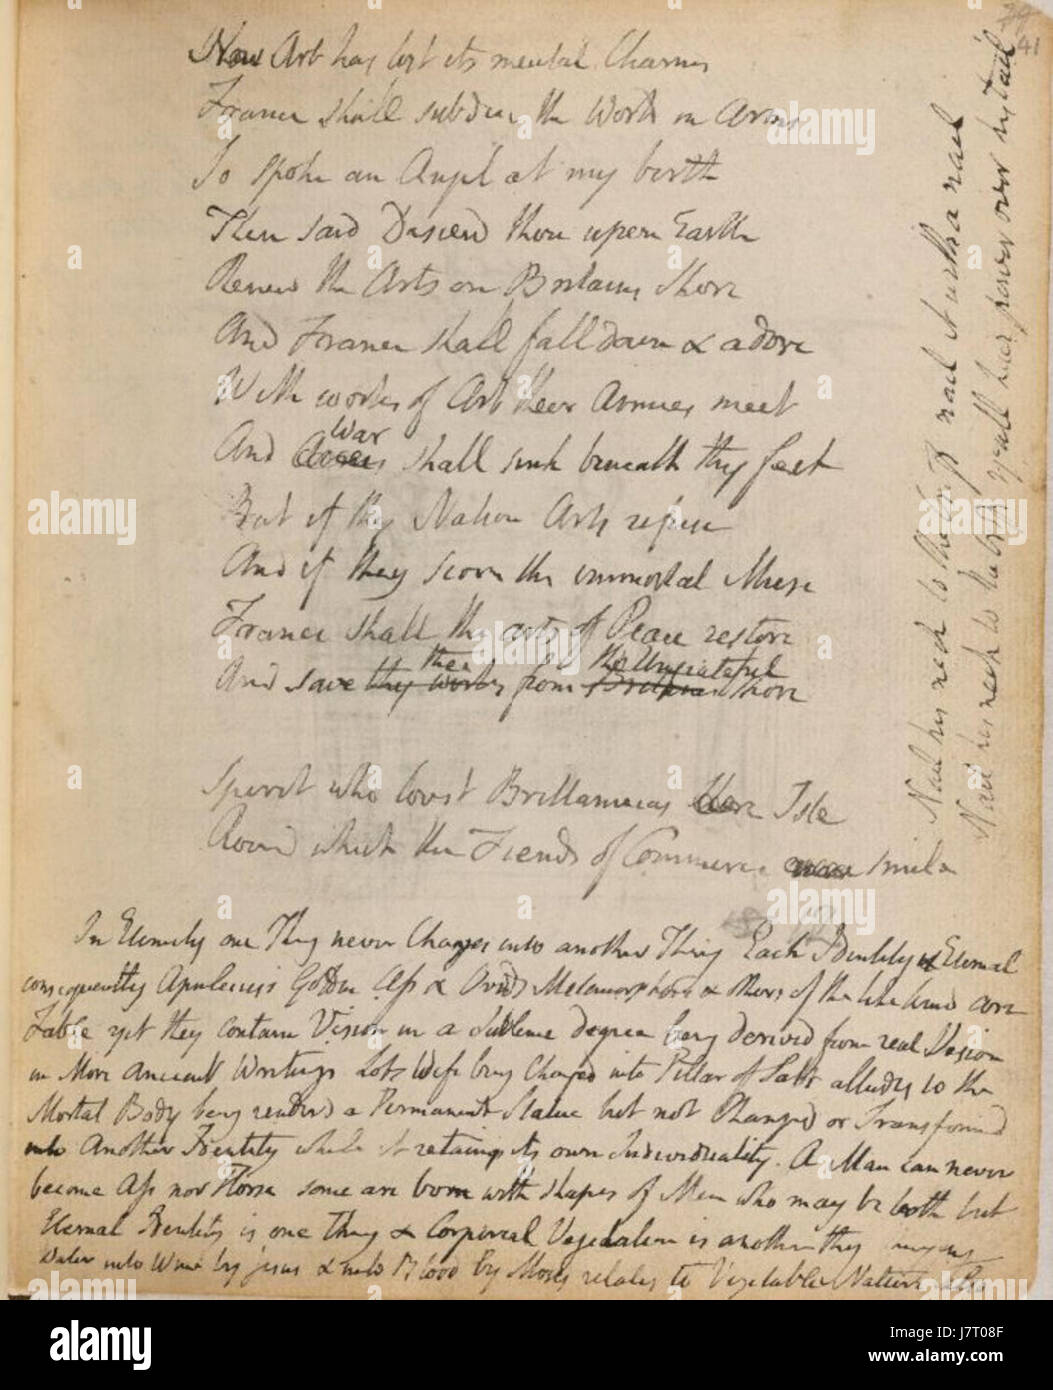 Now Art has lost its mental Charms
France shall subdue the World in Arms
So spoke an Angel at my birth
Then said Descend thou upon Earth
Renew the Arts on Britains Shore
And France shall fall down & adore
With works of Art their Armies meet
War
And Armies shall sink beneath thy feet
But if thy Nation Arts refuse
And if they scorn the immortal Muse
France shall the arts of Peace restore
thee the Ungrateful
And save thy works from Britains Shore
Spirit who lovst Brittannias Isle
Round which the Fiends of Commerce smile
In Eternity one Thing never Changes into another Thing Each Identity is Eternal
consequently Apuleius's Golden Ass & Ovids Metamorphosis & others of the like kind are
Fable yet they contain Vision in a Sublime degree being derived from real Vision
in More Ancient Writings Lots Wife being Changed into Pillar of Salt alludes to the
Mortal Body being renderd a Permanent Statue but not Changed or Transformed
into Another Identity while it retains its own Individuality. A Man can never
become Ass nor Horse some are born with shapes of Men who may be both but
Eternal Identity is one thing & Corporeal Vegetation is another thing Changing
Water into Wine by Jesus & into Blood by Moses relates to Vegetable Nature also
Nail his neck to the Cross nail it with a nail
Nail his neck to the Cross ye all have power over his tail
41
alamy
Image ID: J7T08F
www.alamy.com